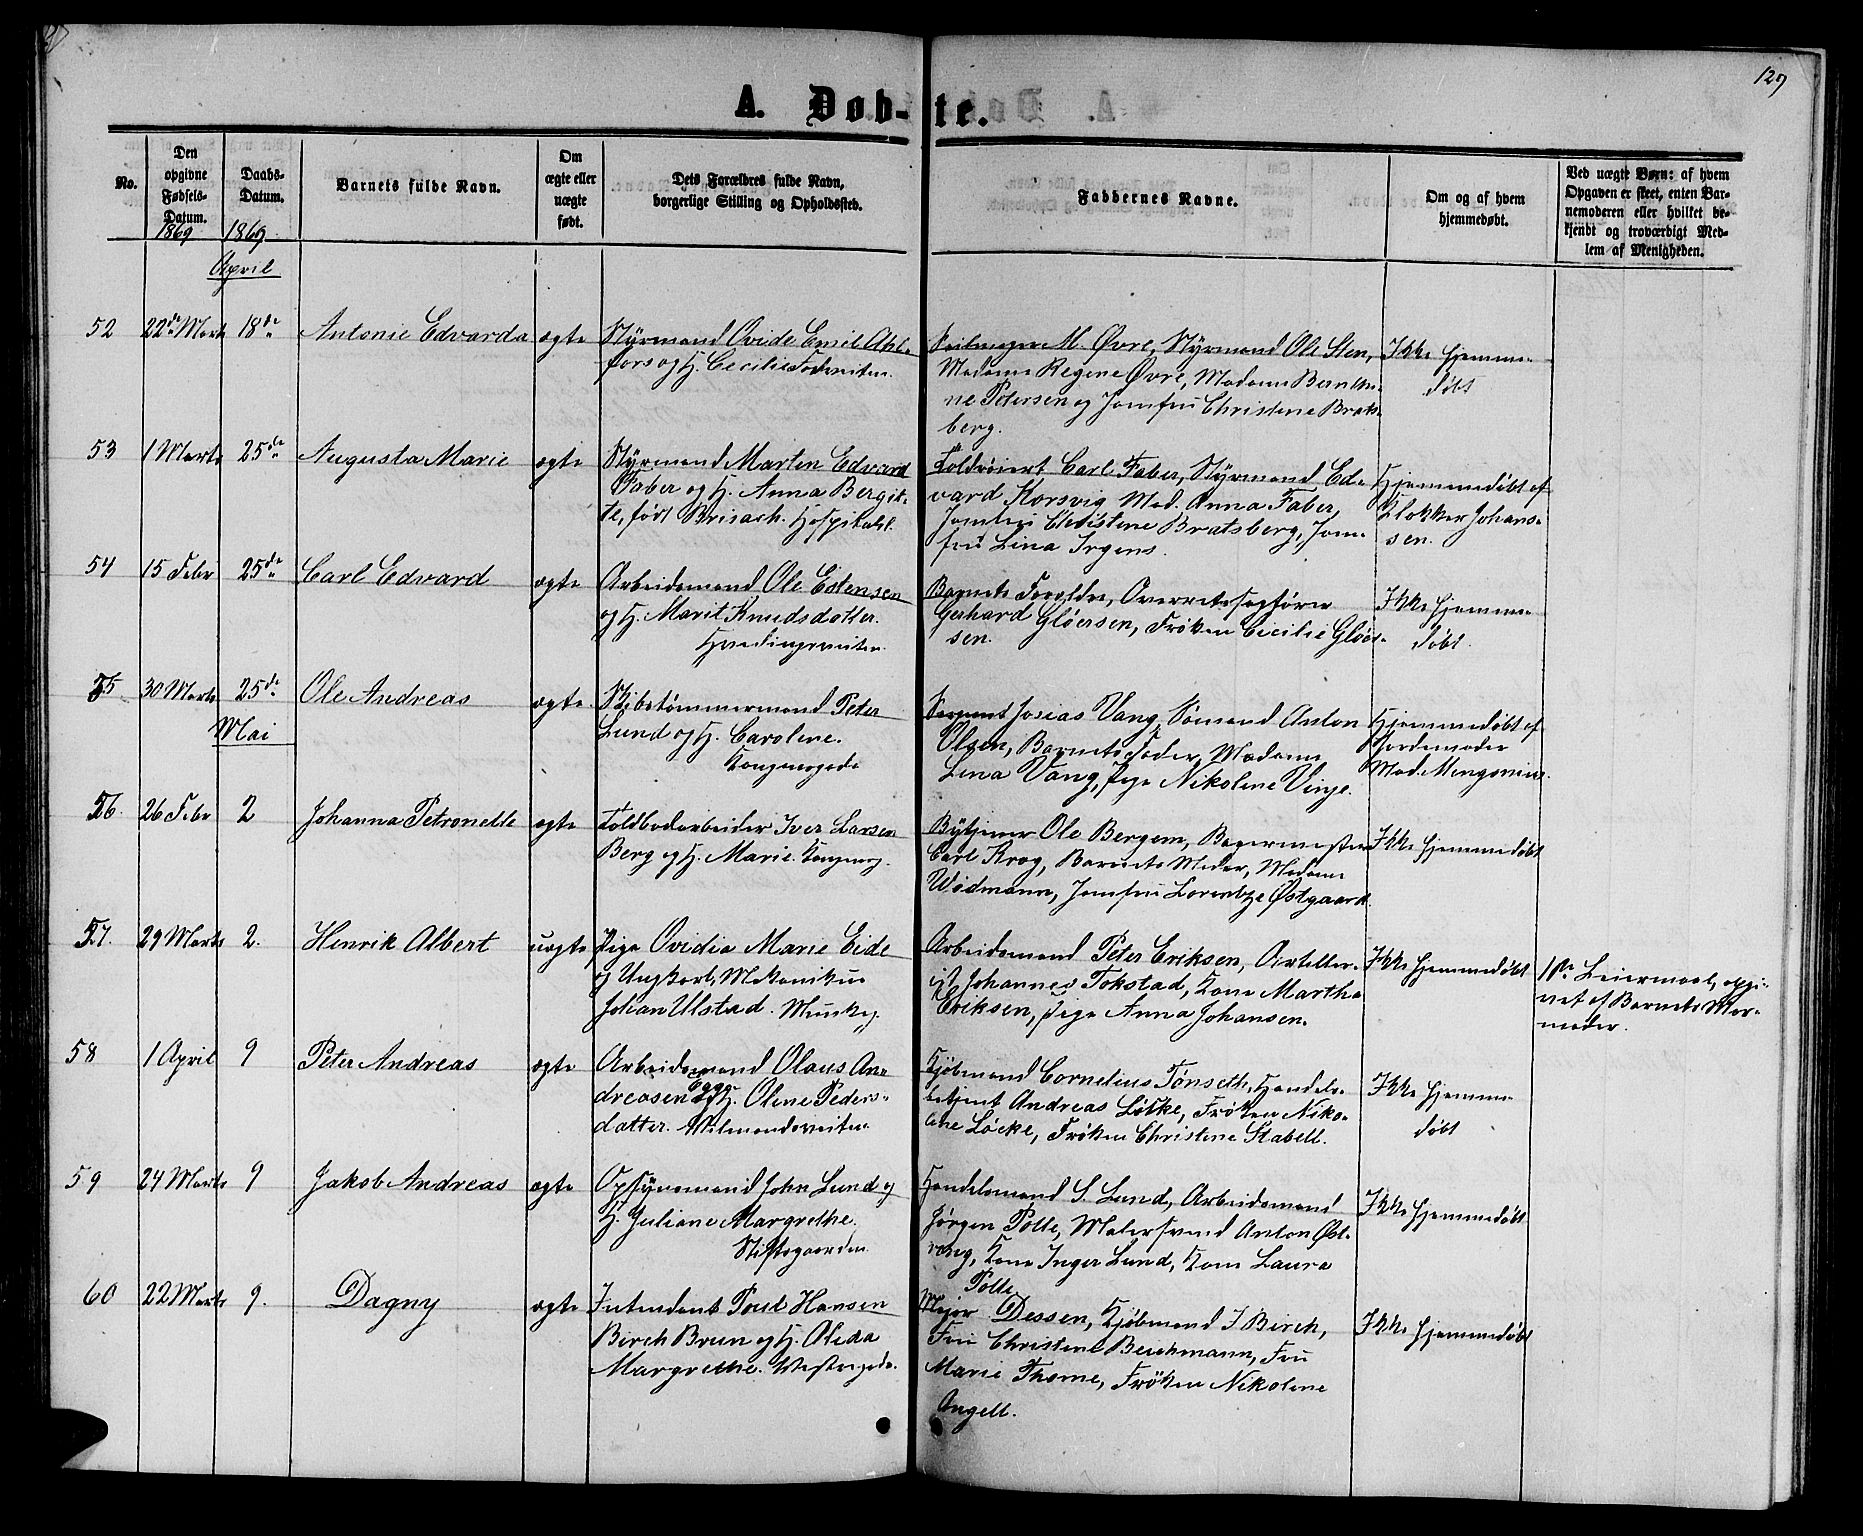 127
A. Døb-te.
No.
Den opgivne Fødsels-Datum.
Daabs-Datum.
Barnets fulde Navn.
Om ægte eller uægte født.
Dets Forældres fulde Navn, borgerlige Stilling og Opholdssted.
Faddernes Navne.
Om og af hvem hjemmedøbt.
Ved uægte Børn: af hvem Opgaven er skeet, enten Barnemoderen eller hvilket bekjendt og troværdigt Medlem af Menigheden.
1869 1869
April
52 22de Marts 18de Antonie Edvarda ægte Styrmand Ovide Emil Ahl-
fors og H. Cecilie
Seilmager M. Øvre, Styrmand Ole Sten,
Madame Regene Øvre, Madame Bernthi-
ne Petersen og Jomfru Christene Brats-
berg.
Ikke hjemme-
døbt
53 1 Marts 25de Augusta Marie ægte Styrmand Marten Edvard
Faber og H. Anna Bergit-
te, født Brisach. Hospitalsl.
Toldroiert Carl Faber, Styrmand Ed-
vard Korsvig Mad. Anna Faber,
Jomfru Christene Bratsberg, Jom-
fru Lina Irgens.
Hjemmedøbt af
Klokker Johan-
sen.
54 15 Febr 25de Carl Edvard ægte Arbeidsmand Ole Estensen
og H. Marit Knudsdatter.
Barnets Forældre, Overretssagfører
Gerhard Gløersen, Frøken Cicilie Gløer-
sen.
Ikke hjemme-
døbt.
55 30 Marts 25de Ole Andreas ægte Skibstømmermand Peter
Lund og H. Carolene.
Kongensgade
Sergent Josias Vang, Sømand Anton
Olsen, Barnets Fader, Madame
Lina Vang, Pige Nikolene Vinje.
Hjemmedøbt af
Jordemoder
Mad. Mengonius.
Mai
56. 26 Febr 2 Johanna Petronelle ægte Toldbodarbeider Iver Larsen
Berg og H. Marie. Kongensg.
Bytjener Ole Bergem, Bagermester
Carl Krog, Barnets Moder, Madame
Widmann, Jomfru Lorentze Østgaard.
Ikke hjemmedøbt
57. 29 Marts 2. Henrik Albert uægte Pige Ovidia Marie Eide
og Ungkarl, Mekanikus
Johan Ulstad. Munkg.
Arbeidsmand Peter Eriksen, Artiller-
ist Johannes Tokstad, Kone Martha
Eriksen, Pige Anna Johansen.
Ikke hjemmedøbt
1ste Leiermaal, opgi-
vet af Barnets Mor-
moder.
58 1 April 9 Peter Andreas ægte Arbeidsmand Olaus An-
dreasen Egge og H. Olene Peders-
datter.
Kjøbmand Cornelius Tønseth, Handels-
betjent Andreas Løcke, Frøken Niko-
line Løcke, Frøken Christene Stabell.
Ikke hjemme-
døbt
59 24 Marts 9 Jakob Andreas ægte Opsynsmand John Lund og
H. Juliane Margrethe.
Stiftsgaarden
Handelsmand S. Lund, Arbeidsmand
Jørgen Polle, Malersvend Anton Øst-
vang, Kone Inger Lund, Kone Laura
Polle
Ikke hjemmedøbt
60 22 Marts 9. Dagny ægte Intendent Poul Hansen
Birch Brun og H. Oleda
Margrethe.
Major Dessen, Kjøbmand I Birch,
Fru Christene Beichmann, Fru
Marie Thorne, Frøken Nikolene
Angell.
Ikke hjemmedøbt